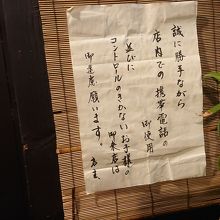 誠に勝手ながら
店内での携帯電話の
御使用
並びに
コントロールのきかないお子様の
御来店は
御遠慮願います。
店主